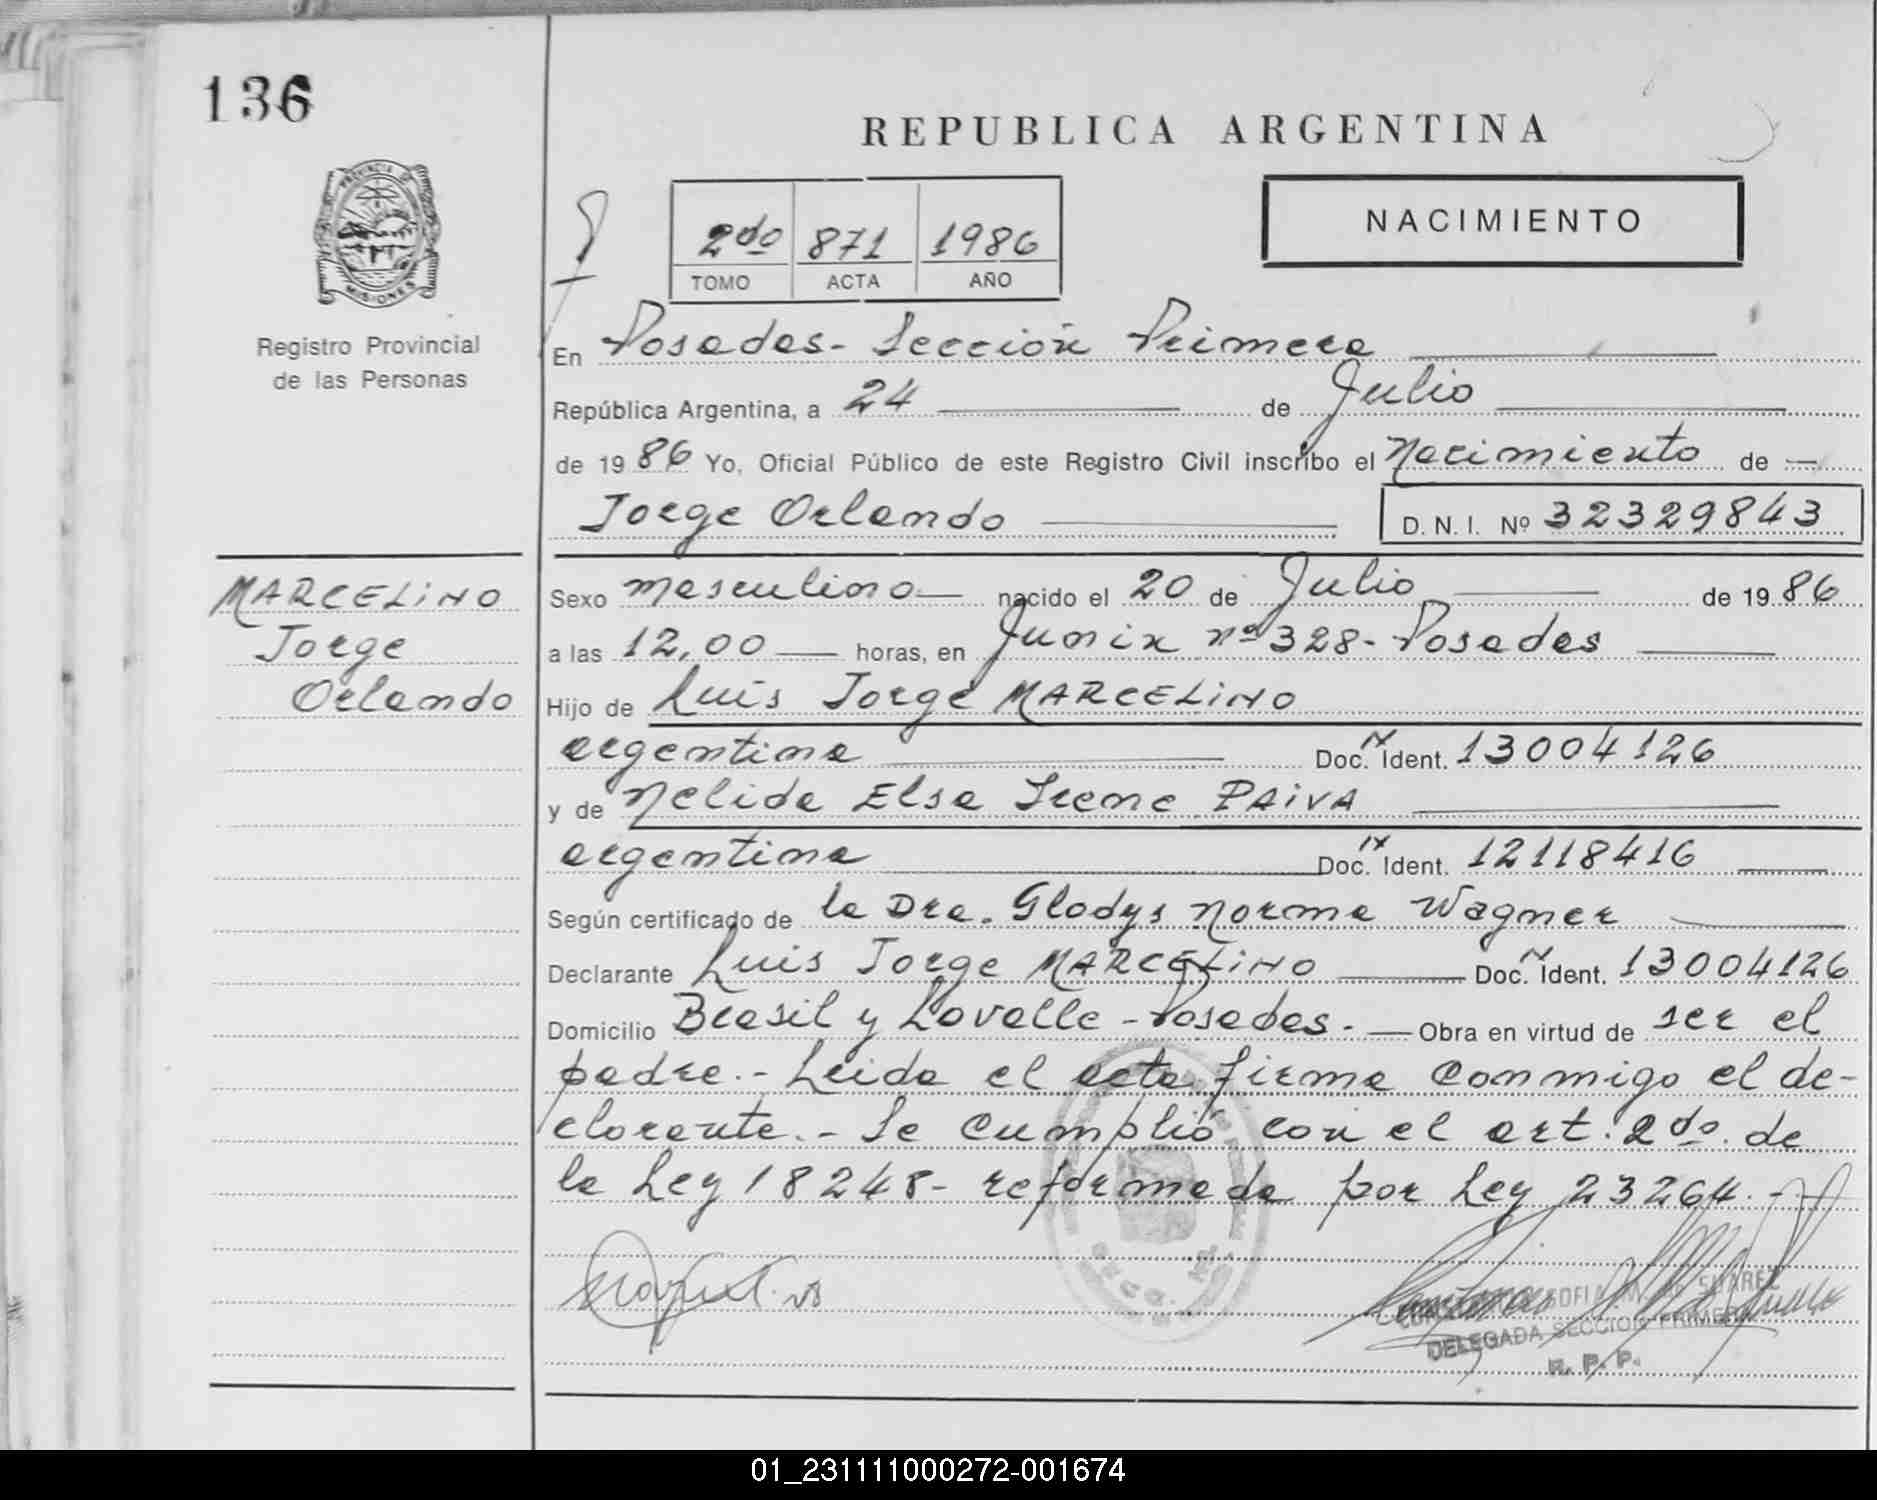 136
REPUBLICA ARGENTINA
PROVINCIA DE
MISIONES
Registro Provincial
de las Personas
2do 871 1986
TOMO ACTA AÑO
NACIMIENTO
En Posadas - Sección Primera
República Argentina, a 24 de Julio
de 1986 Yo, Oficial Público de este Registro Civil inscribo el Nacimiento de —
Jorge Orlando
D. N. I. Nº 32329843
MARCELINO
Jorge
Orlando
Sexo masculino — nacido el 20 de Julio de 1986
a las 12,00 — horas, en Junin nº 328 - Posadas
Hijo de Luis Jorge MARCELINO
argentina Doc. N Ident. 13004126
y de Nelida Elsa Irene PAIVA
argentina Doc. N Ident. 12118416
Según certificado de la Dra. Gladys Norma Wagner
Declarante Luis Jorge MARCELINO Doc. N Ident. 13004126
Domicilio Brasil y Lavalle - Posadas. — Obra en virtud de ser el
padre. - Leida el acta firma conmigo el de-
clarante. - Se cumplió con el art. 2do. de
la Ley 18248 - reformada por Ley 23264. -
SOFIA SUAREZ
DELEGADA SECCION PRIMERA
R. P. P.
01_231111000272-001674